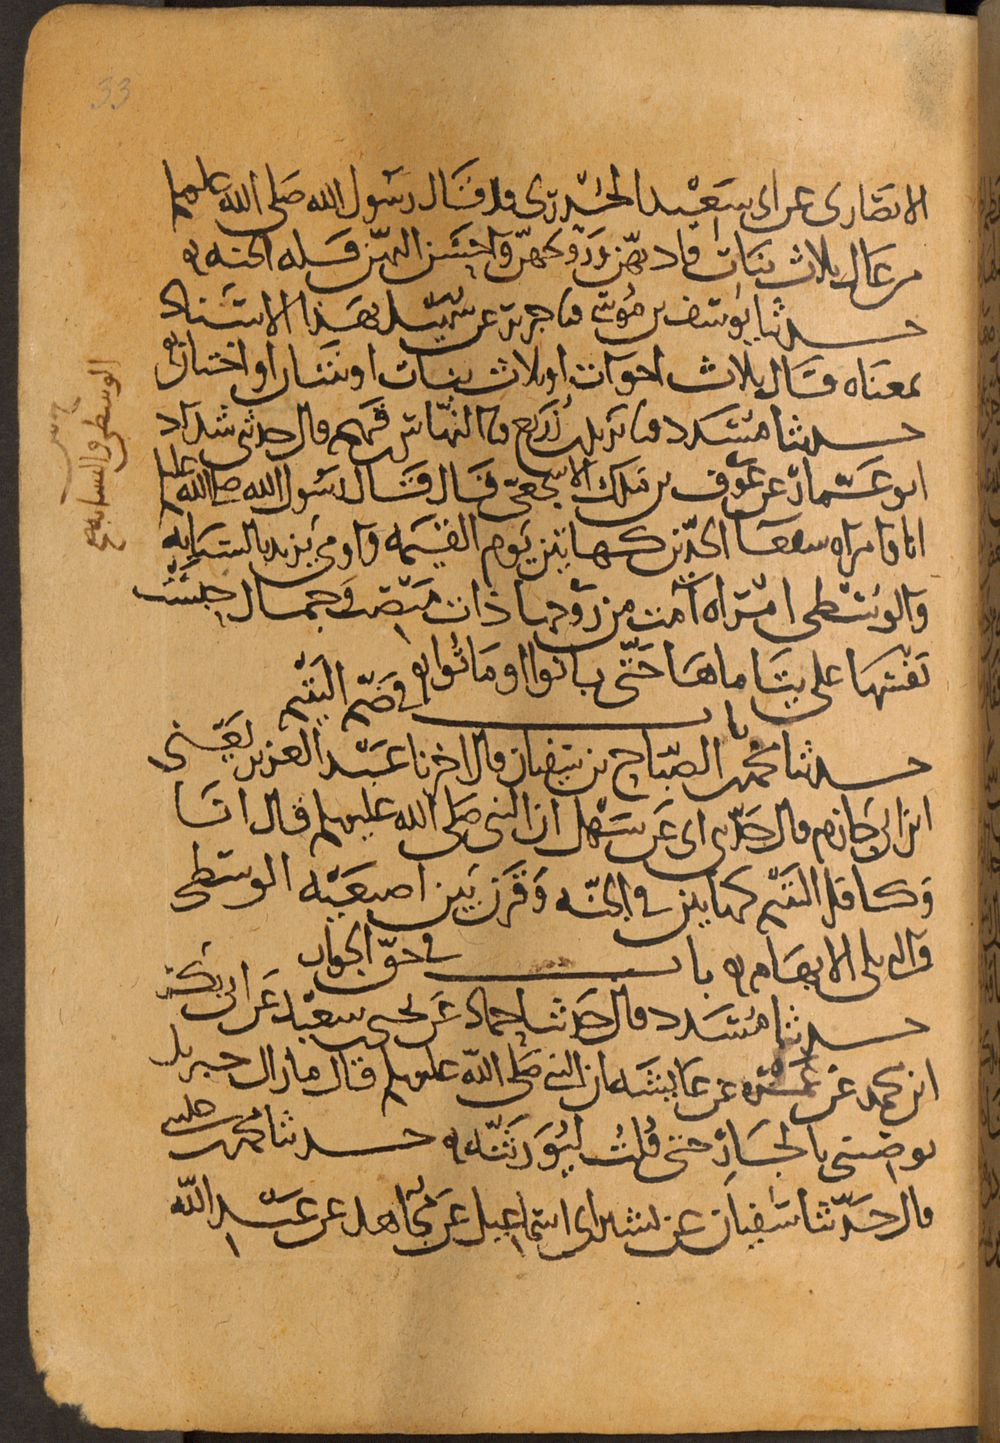 33
الانصارى عن ابى سعيد الخدرى قال قال رسول الله صلى الله عليه وسلم
من عال ثلاث بنات فادبهن وزوجهن واحسن اليهن فله الجنه
حدثنا يوسف بن موسى نا جرير عن سهيل بهذا الاسناد
بمعناه قال ثلاث اخوات او ثلاث بنات او بنتان او اختان
حدثنا مسدد نا يزيد بن زريع نا النهاس بن قهم قال حدثنى شداد
ابو عمار عن عوف بن ملك الاشجعى قال قال رسول الله صلى الله عليه
انا وامراه سفعا الخدين كهاتين يوم القيمه واومى يزيد بالسبابه
والوسطى امراه آمت من زوجها ذات منصب وجمال حبست
نفسها على يتاماها حتى بانوا او ماتوا
باب فى ضم اليتيم
حدثنا محمد الصباح بن سفيان قال اخبرنا عبد العزيز يعنى
ابن ابى حازم قال حدثنى ابى عن سهل ان النبى صلى الله عليه وسلم قال انا
وكافل اليتيم كهاتين فى الجنه وقرن بين اصبعيه الوسطى
والتى تلى الابهام
باب فى حق الجوار
حدثنا مسدد قال حدثنا حماد عن يحيى سعيد عن ابى بكر
ابن محمد عن عمره عن عايشه ان النبى صلى الله عليه وسلم قال ما زال جبريل
يوصينى بالجار حتى قلت ليورثنه حدثنا محمد عيسى
قال حدثنا سفيان عن بشير ابى اسماعيل عن مجاهد عن عبد الله
الوسطى والسبابه